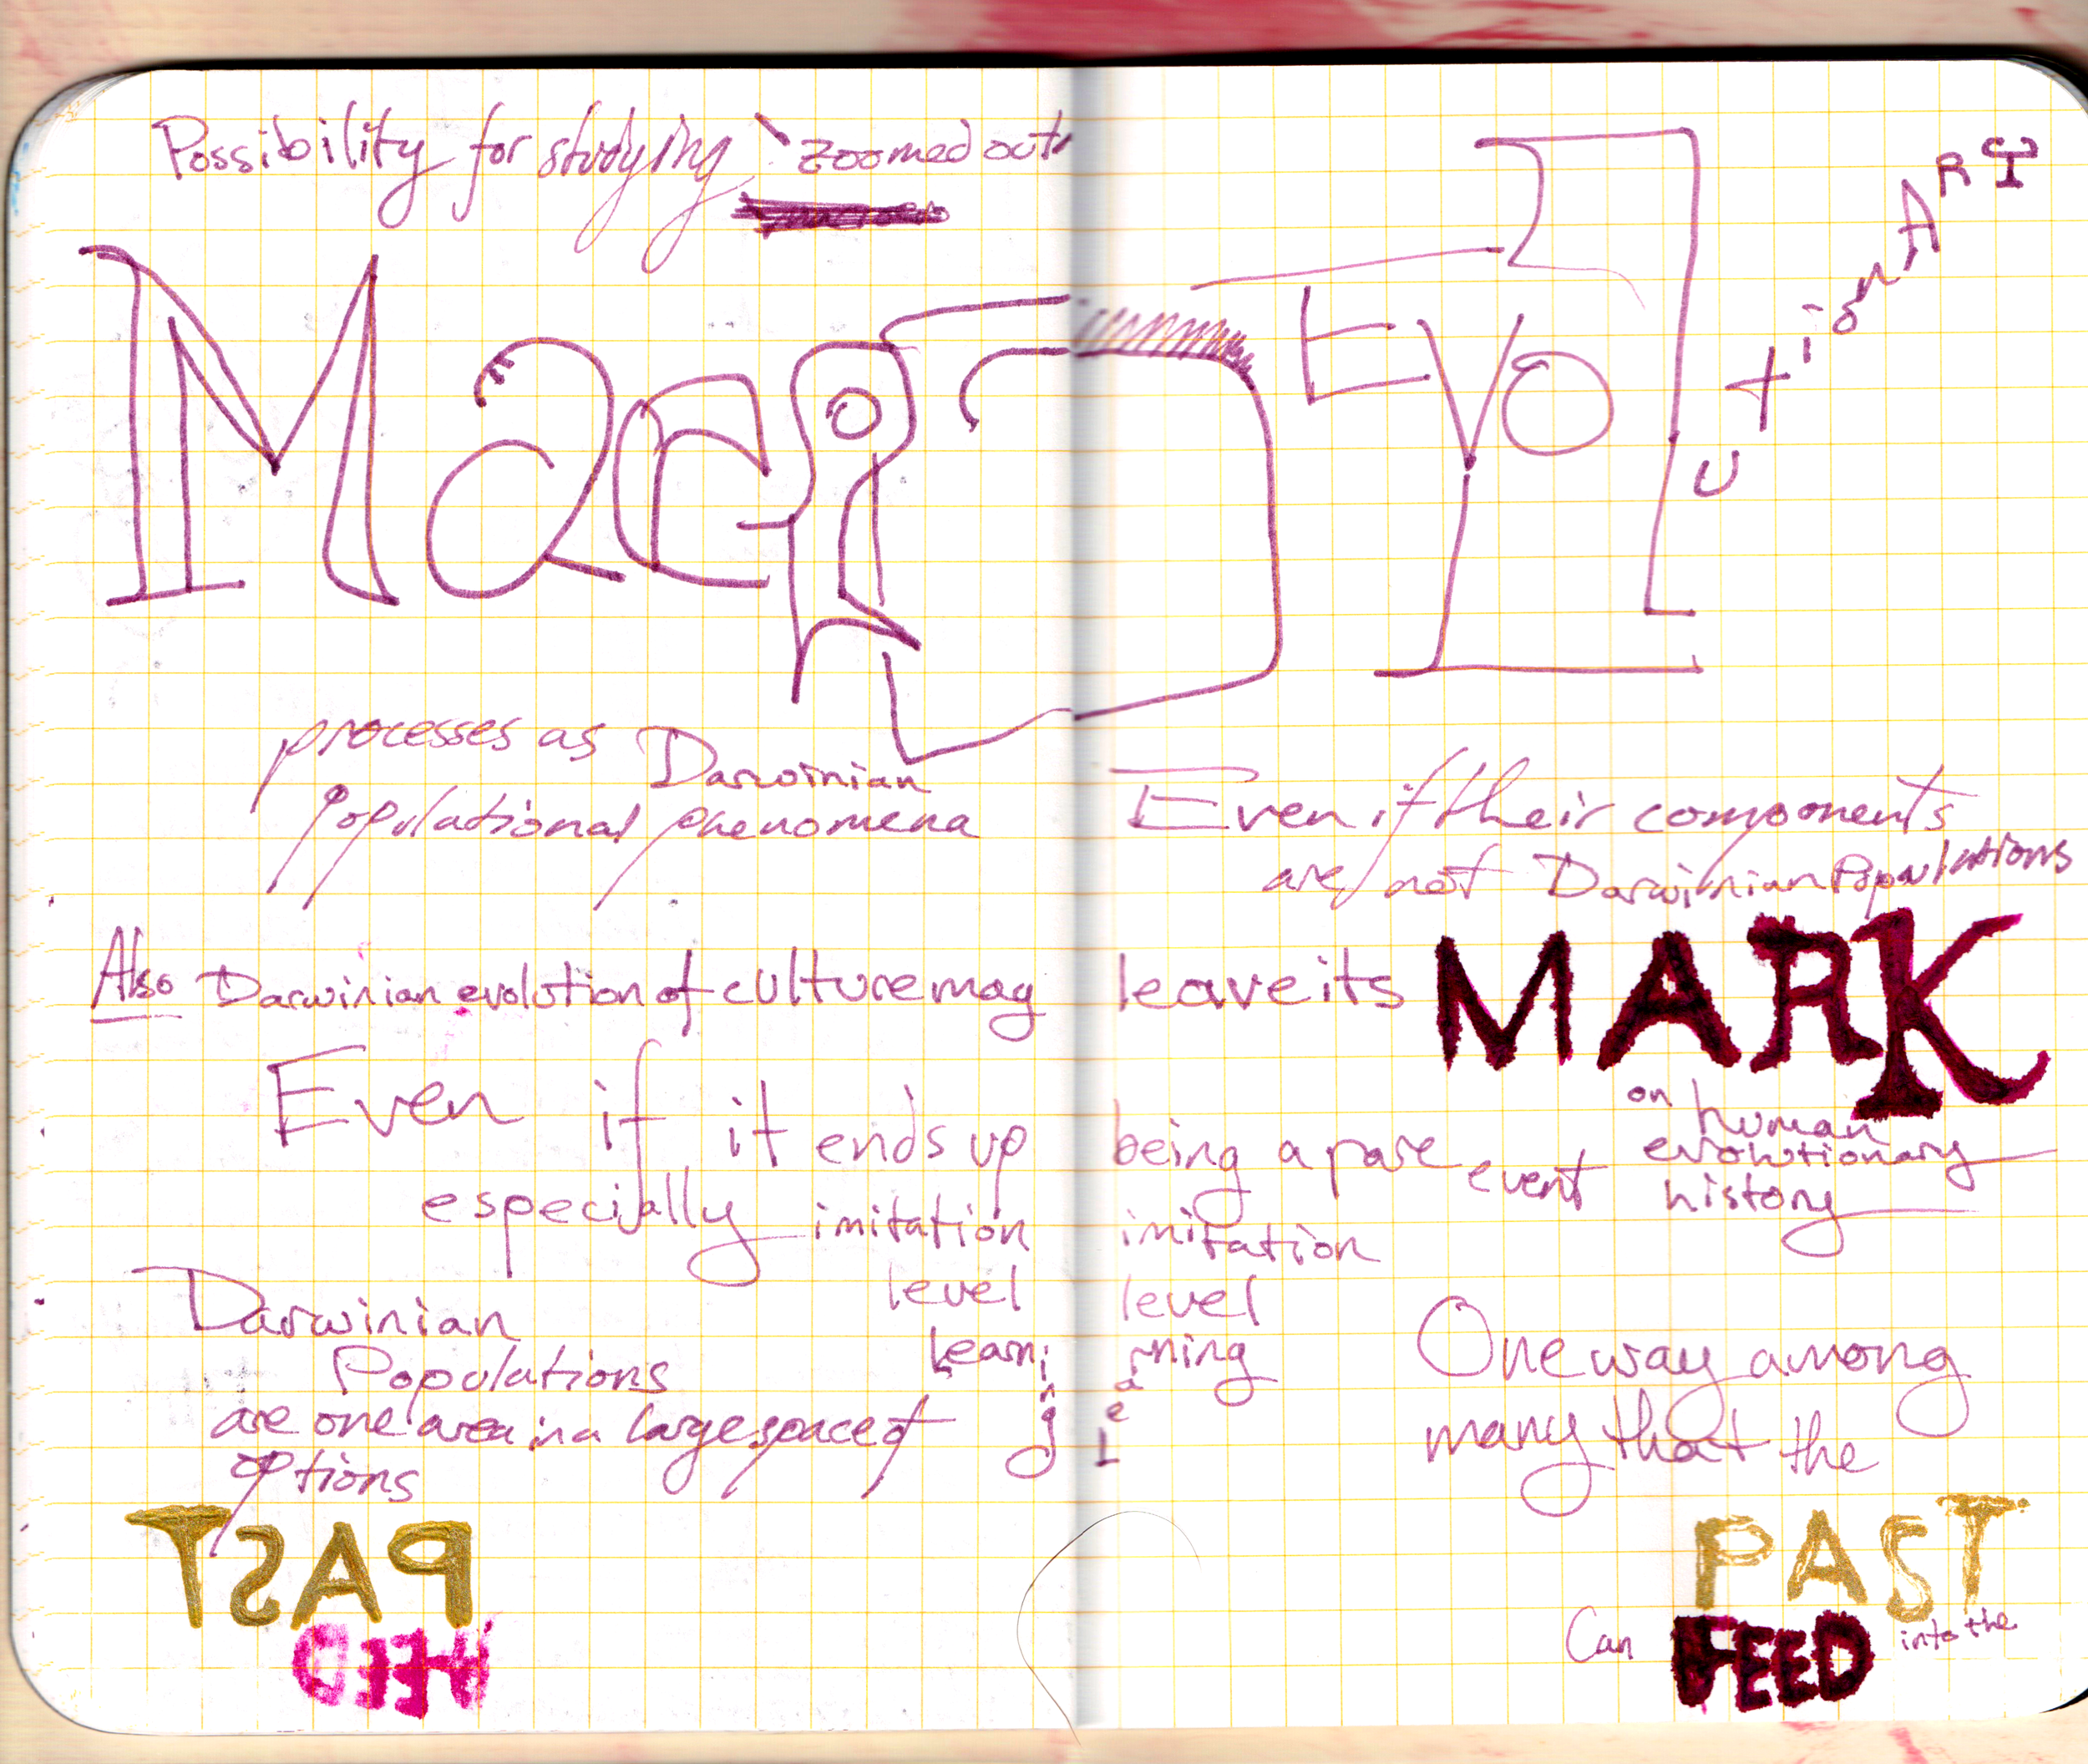 Possibility for studying "zoomed out"
Macro EVolutionARY
processes as Darwinian
populational phenomena
Even if their components
are not Darwinian Populations
Also Darwinian evolution of culture may leave its MARK
on human
evolutionary
history
Even if it ends up being a rare event
especially imitation imitation
level level
Learning Learning
Darwinian
Populations
are one area in a large space of
options
One way among
many that the
PAST
Can FEED into the
PAST
FEED